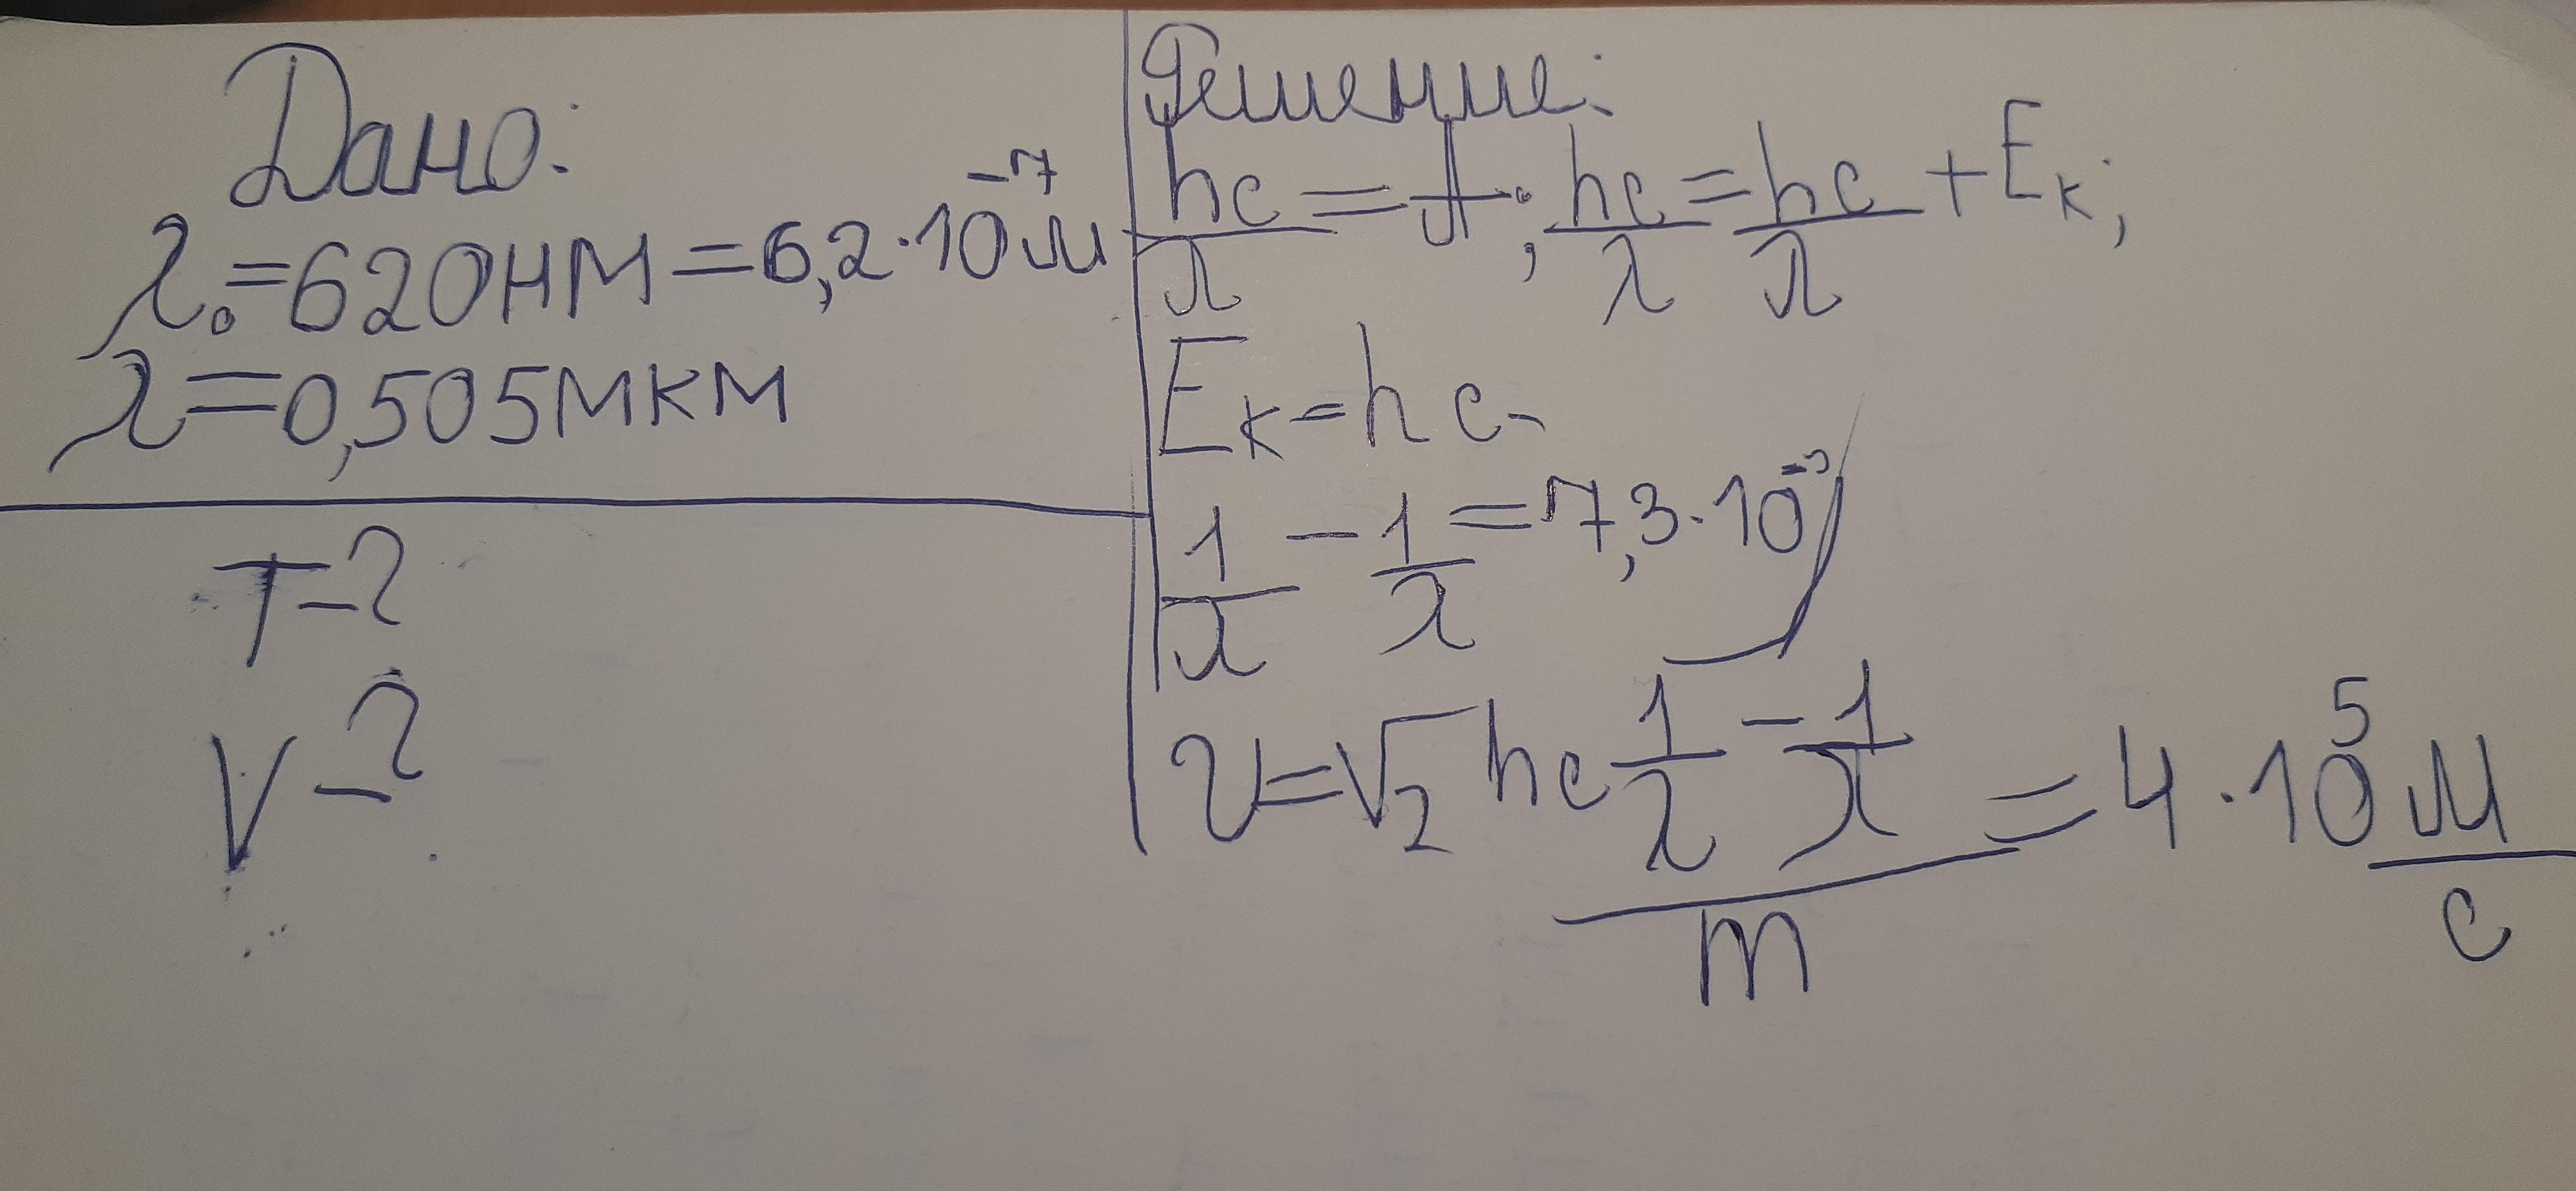 Дано:
λ₀=620нм=6,2·10⁻⁷м
λ=0,505мкм
T-?
V-?
Решение:
hc/λ=A; hc/λ=hc/λ+Eк;
Eк=hc-
1/λ-1/λ=7,3·10
υ=√2 hc 1/λ-1/λ/m=4·10⁵м/с